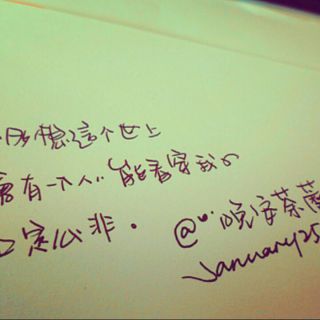 多想這个世上
會有一个人..能看穿我的
口是心非.
@..晚安荼蘼
January25